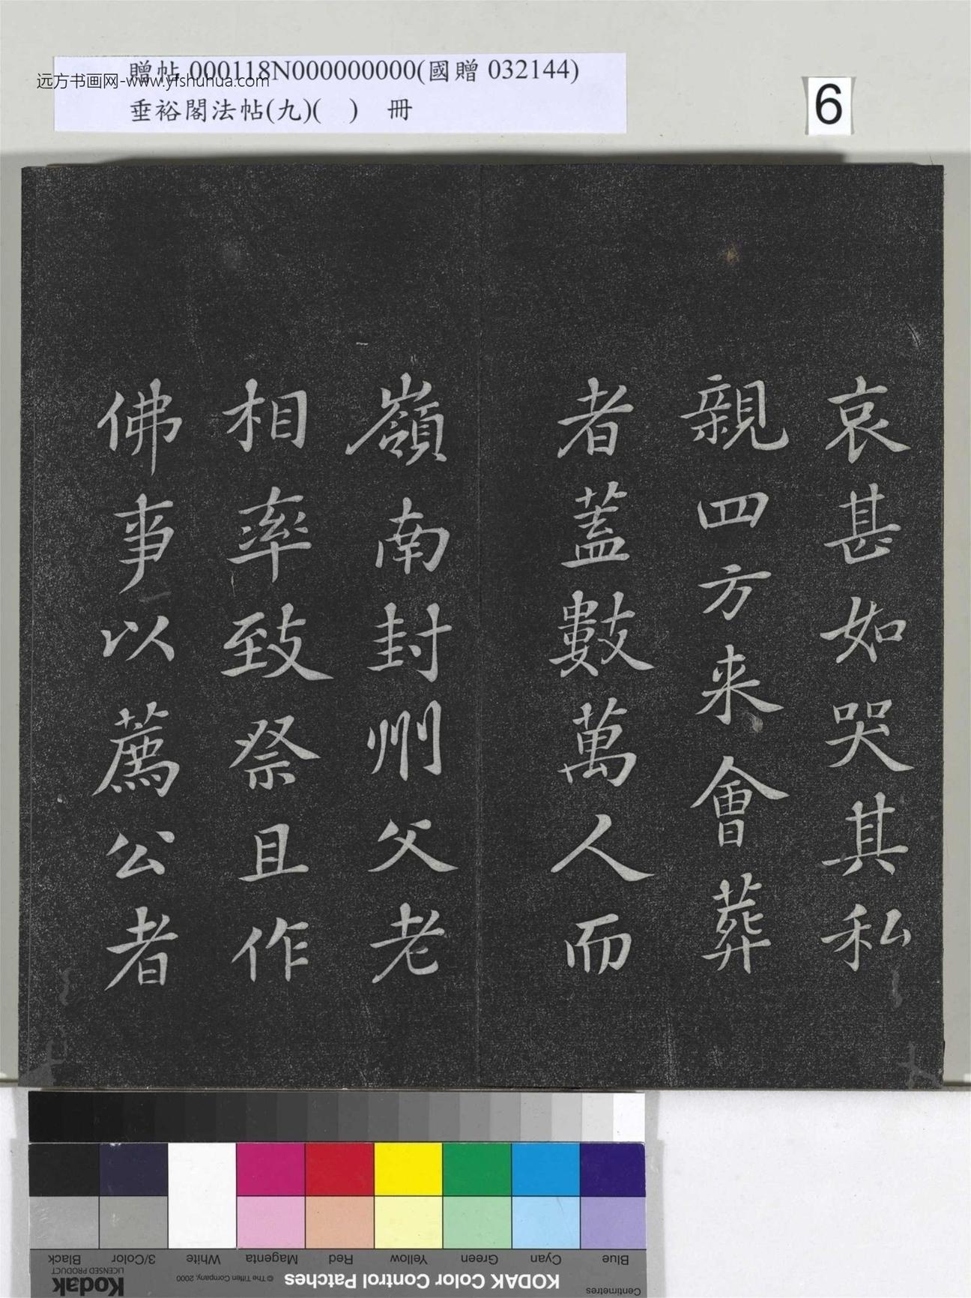 贈帖 000118N000000000(國贈 032144)
远方书画网-www.yfshuhua.com
垂裕閣法帖(九)( ) 冊
6
哀甚如哭其私
親四方来會葬
者蓋數萬人而
嶺南封州父老
相率致祭且作
佛事以薦公者
Blue Cyan Green Yellow Red Magenta White 3/Color Black
Centimetres KODAK Color Control Patches © The Tiffen Company, 2000 Kodak
LICENSED PRODUCT